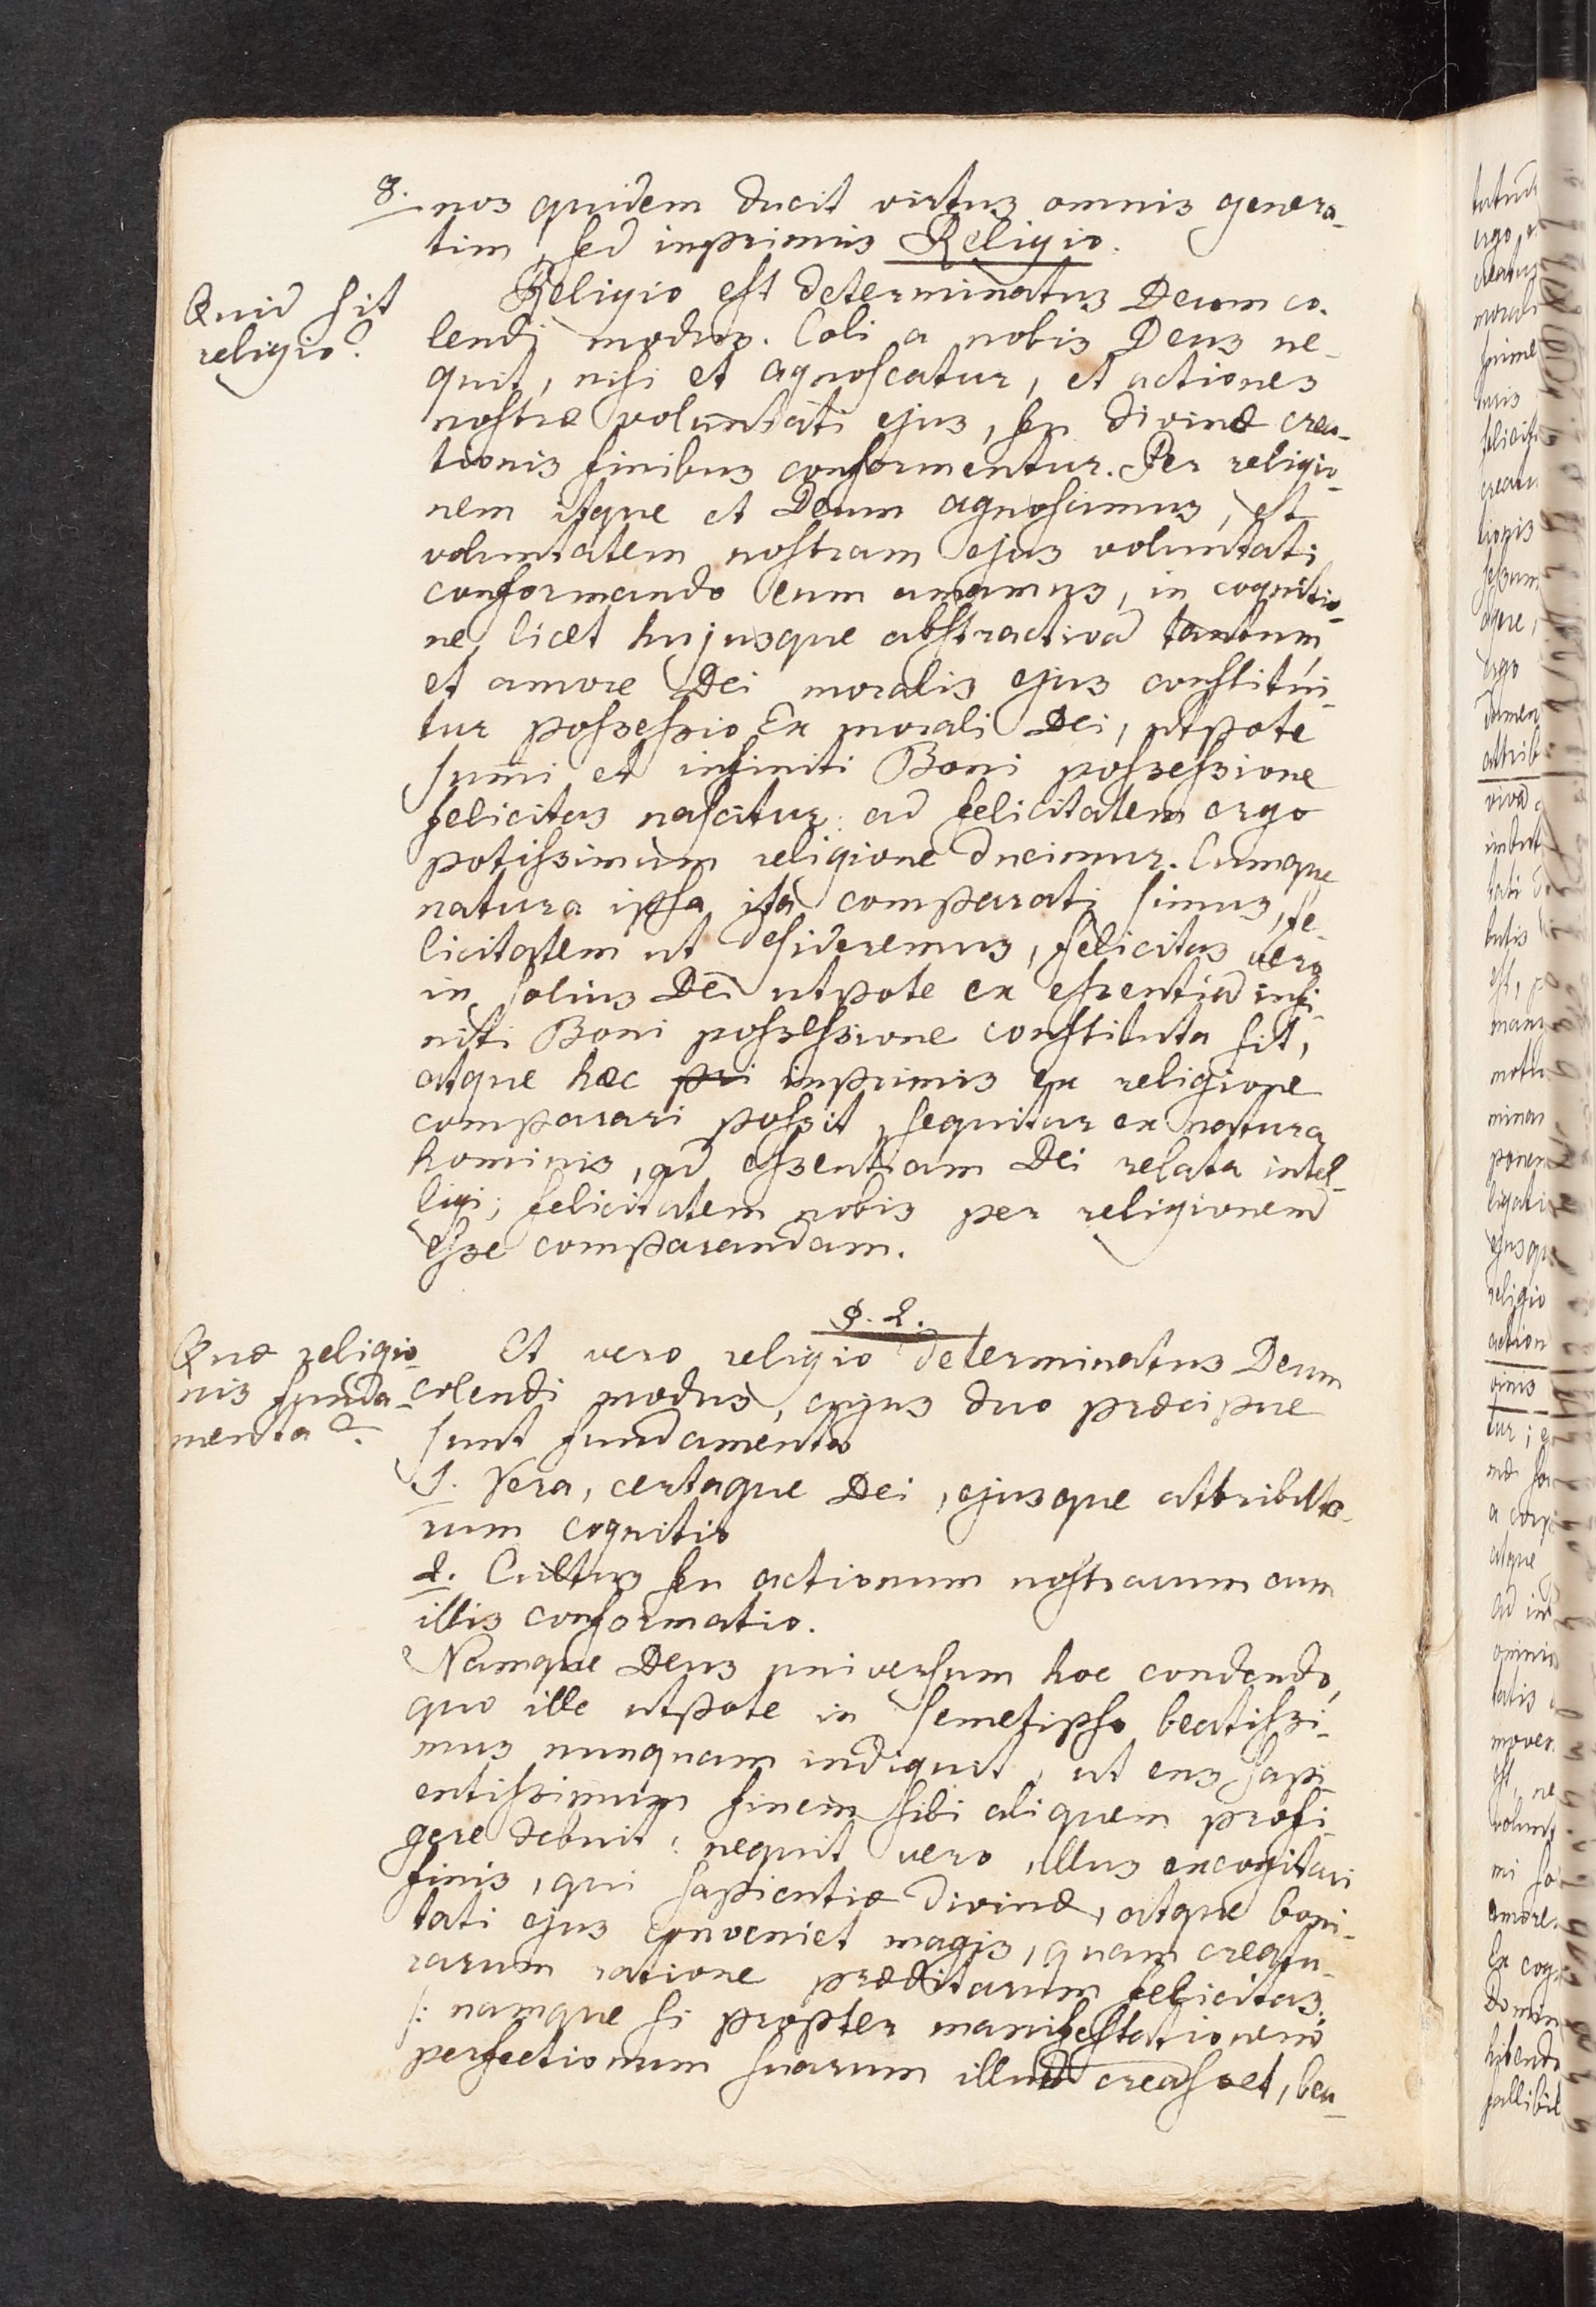 8. nos quidem ducit virtus omnis genera-
tim, sed inprimis Religio.
Quid sit
religio?
Religio est determinatus Deum co-
lendi modus. Coli a nobis Deus ne-
quit, nisi et agnoscatur, et actiones
nostræ voluntati ejus, seu divinæ crea-
tionis finibus conformentur. Per religio-
nem itaque et Deum agnoscimus, et
voluntatem nostram ejus voluntati
conformando eum amamus, in cognitio-
ne licet hujusque abstractiva tantum
et amore Dei moralis ejus constitui-
tur possessio Ex morali Dei, utpote
summi et infiniti Boni possessione
felicitas nascitur: ad felicitatem ergo
potissimum religione ducimur. Cumque
natura ipsa ita comparati simus, fe-
licitatem ut desideremus, felicitas vero
in solius Dei utpote ex essentia infi-
niti Boni possessione constituta sit,
atque hæc pri inprimis ex religione
comparari possit, sequitur ex natura
hominis, ad essentiam Dei relata intel-
ligi; felicitatem nobis per religionem
esse comparandam.
§. 2.
Quæ religio-
nis funda-
menta?
Et vero religio determinatus Deum
colendi modus, cujus duo præcipue
sunt fundamenta
1. Vera, certaque Dei, ejusque attributo-
rum cognitio
2. Cultus seu actionum nostrarum cum
illis conformatio.
Namque Deus universum hoc condendo,
quo ille utpote in semetipso beatissi-
mus nunquam indiguit, ut ens sapi-
entissimum finem sibi aliquem præfi-
gere debuit: nequit vero ullus excogitari
finis, qui sapientiæ divinæ, atque boni-
tati ejus conveniet magis, quam creatu-
rarum ratione præditarum felicitas;
/: namque si propter manifestationem
perfectionum suarum illud creasset, bea-